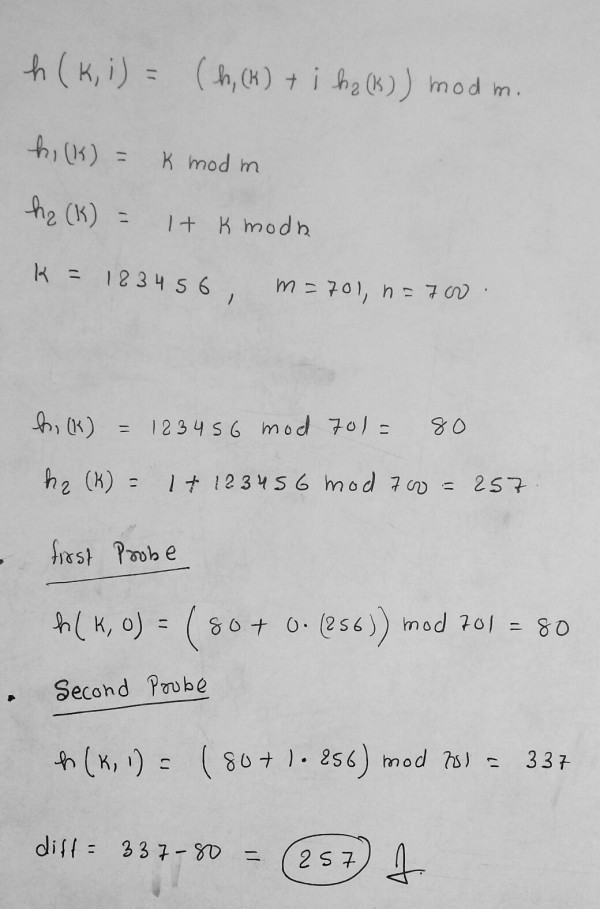 h(k,i) = (h₁(k) + i h₂(k)) mod m.
h₁(k) = k mod m
h₂(k) = 1 + k mod n
k = 123456, m = 701, n = 700.
h₁(k) = 123456 mod 701 = 80
h₂(k) = 1 + 123456 mod 700 = 257.
• first Probe
h(k,0) = (80 + 0.(256)) mod 701 = 80
• Second Probe
h(k,1) = (80 + 1.256) mod 701 = 337
diff = 337-80 = 257